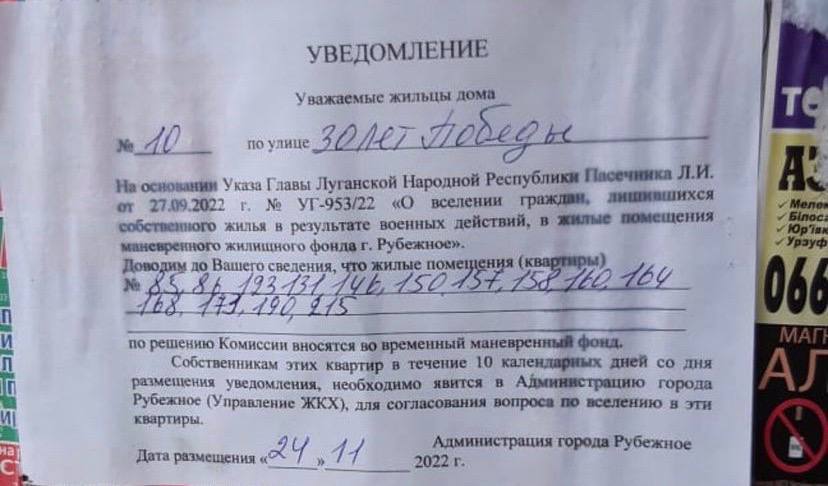 УВЕДОМЛЕНИЕ
Уважаемые жильцы дома
№ 10 по улице 30 лет Победы
На основании Указа Главы Луганской Народной Республики Пасечника Л.И.
от 27.09.2022 г. № УГ-953/22 «О вселении граждан, лишившихся
собственного жилья в результате военных действий, в жилые помещения
маневренного жилищного фонда г. Рубежное».
Доводим до Вашего сведения, что жилые помещения (квартиры)
№ 85, 86, 123 131, 146, 150, 157, 158, 160, 164
168, 190, 215
по решению Комиссии вносятся во временный маневренный фонд.
Собственникам этих квартир в течение 10 календарных дней со дня
размещения уведомления, необходимо явится в Администрацию города
Рубежное (Управление ЖКХ), для согласования вопроса по вселению в эти
квартиры.
Администрация города Рубежное
Дата размещения «24» 11 2022 г.
АЗ
Мелен
Білоса
Юр'ївк
Урзуф
066
МАГН
АЛ